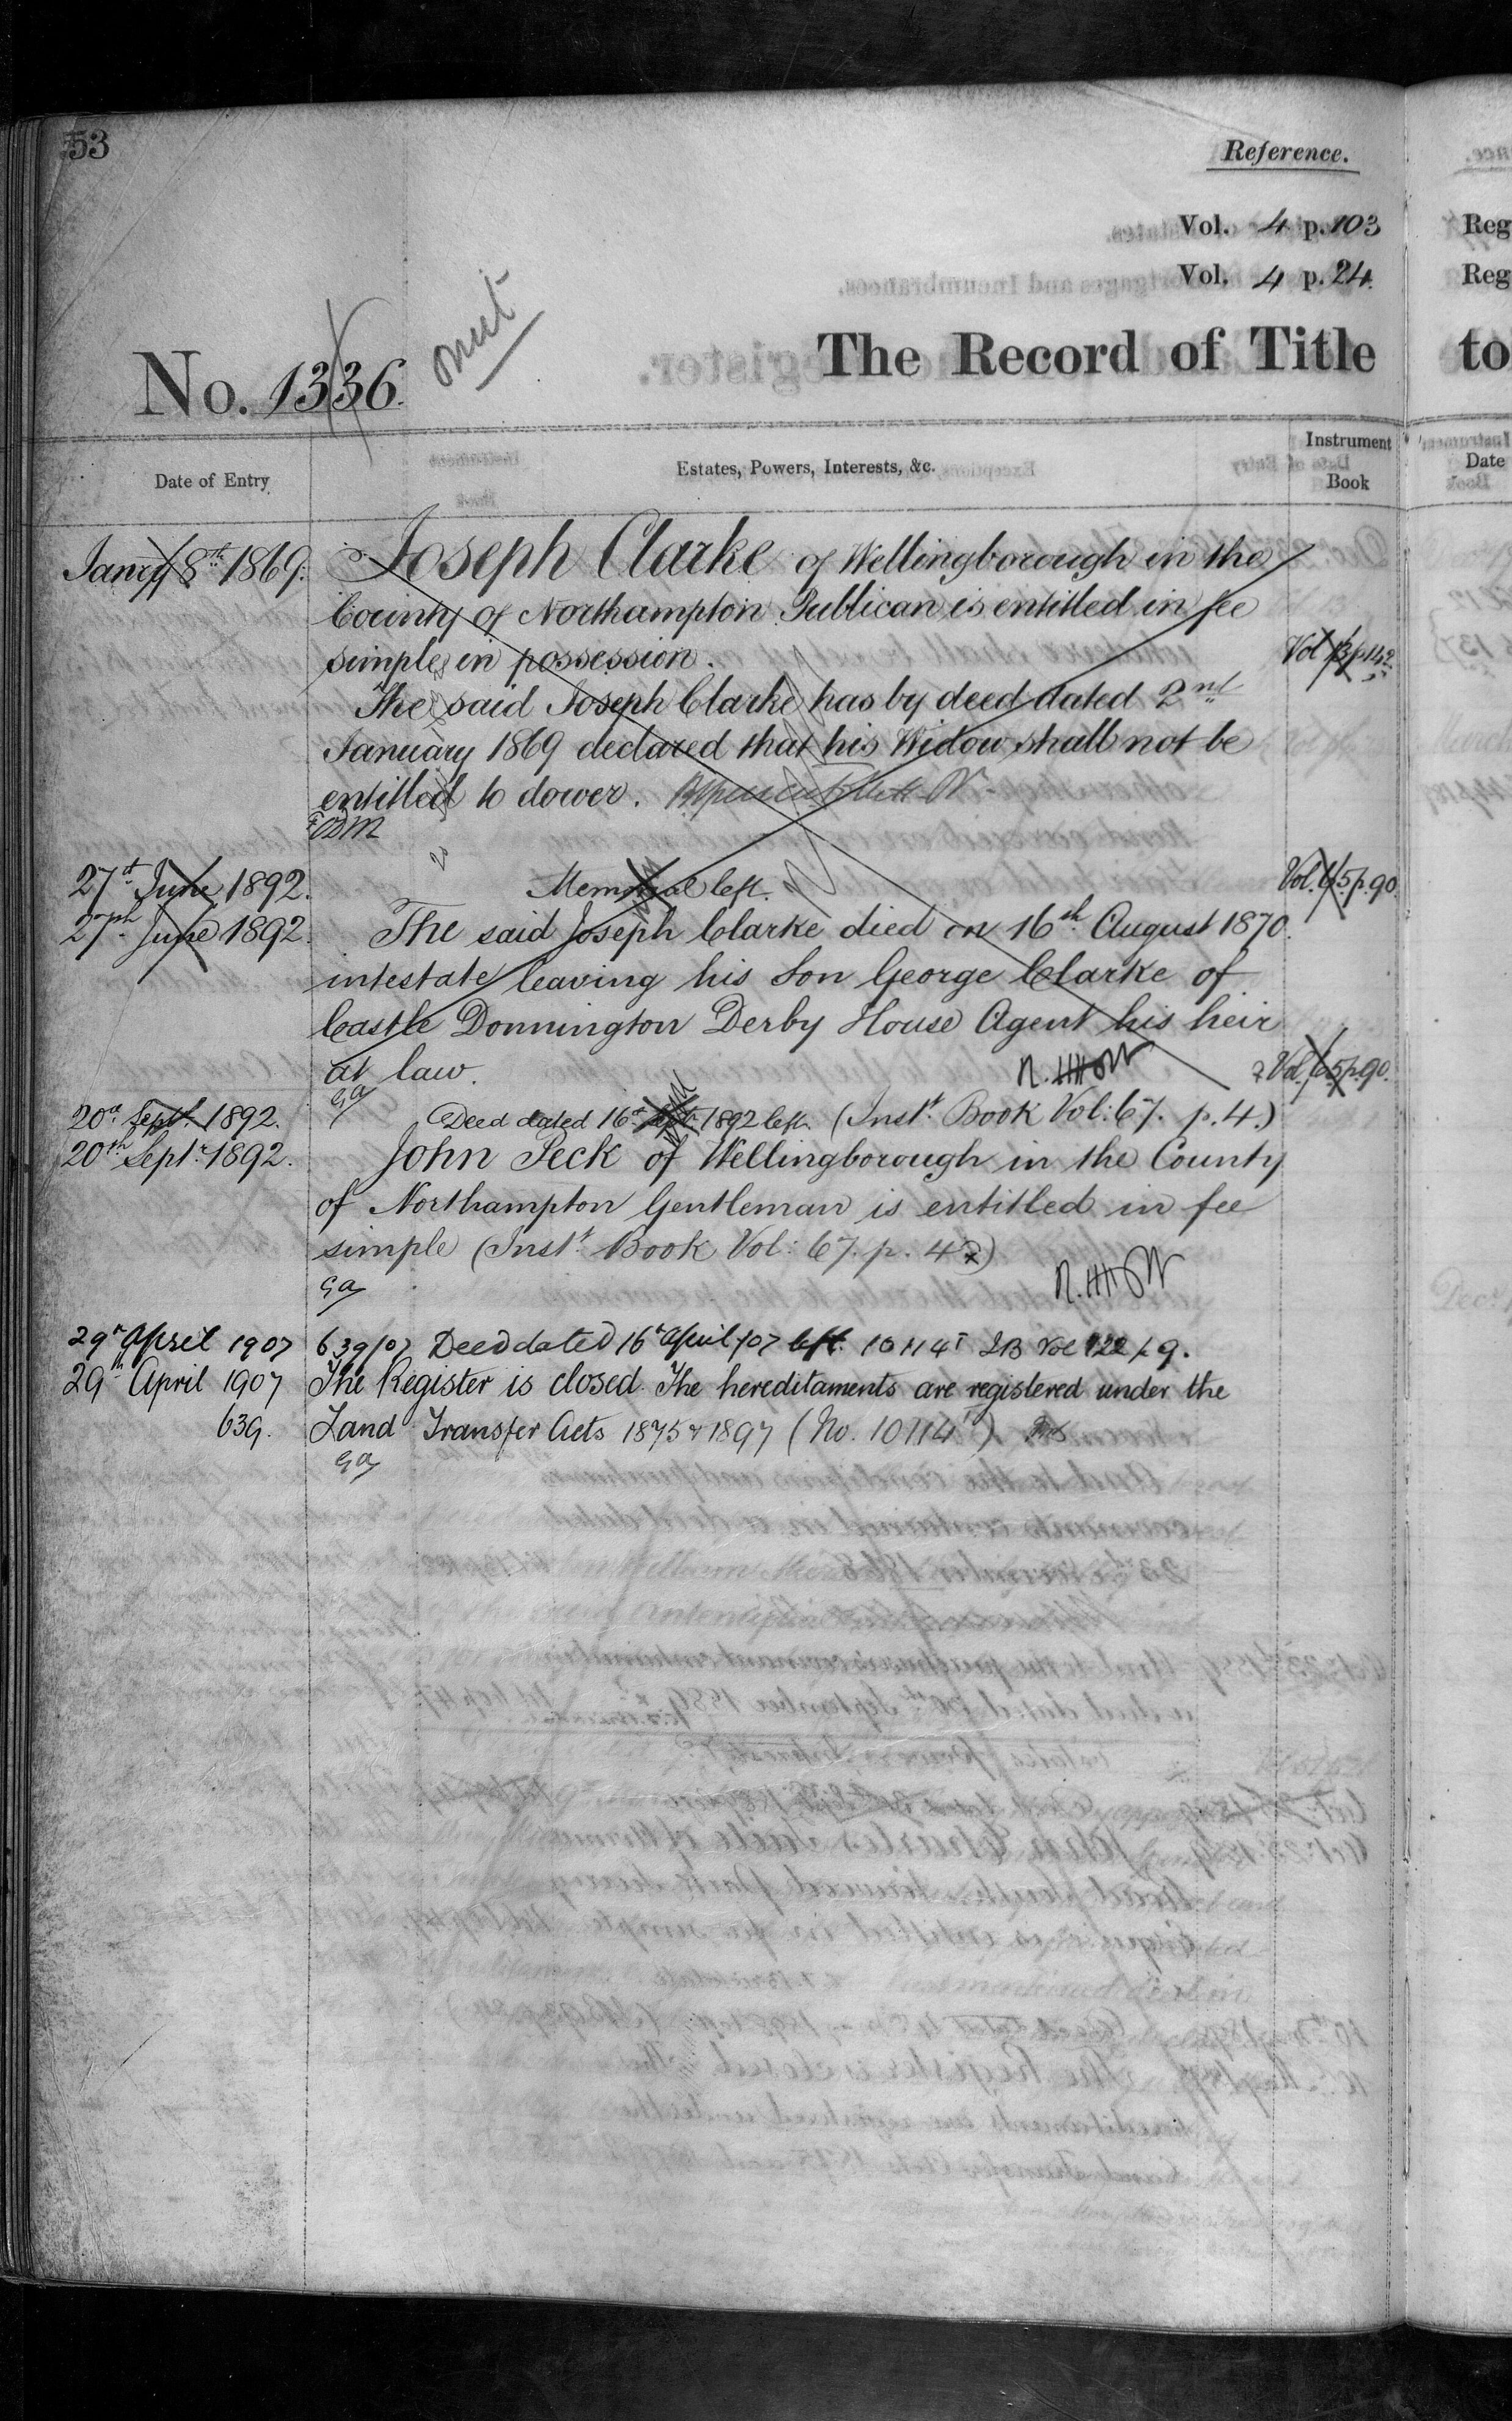 53
Reference.
Vol. 4 p. 103
Vol. 4 p. 24.
omit
No. 1336.
The Record of Title
Date of Entry
Estates, Powers, Interests, &c.
Instrument Book
Jany 8th 1869. Joseph Clarke of Wellingborough in the
County of Northampton Publican is entitled in fee
simple in possession. Vol 13 p 142
The said Joseph Clarke has by deed dated 2nd
January 1869 declared that his Widow shall not be
entitled to dower.
27th June 1892. Memorial left. Vol. 65 p. 90.
27th June 1892. The said Joseph Clarke died on 16th August 1870
intestate leaving his Son George Clarke of
Castle Donnington Derby House Agent his heir
at law. Vol. 65 p. 90.
20th Sept. 1892. Deed dated 16th Sept. 1892 left. (Inst. Book Vol: 67. p. 4.)
20th Sept. 1892. John Peck of Wellingborough in the County
of Northampton Gentleman is entitled in fee
simple (Inst. Book Vol: 67. p. 4)
Ga
29th April 1907 639/07 Deed dated 16th April /07 left. 10114T IB Vol 122 p 9.
29th April 1907 The Register is closed. The hereditaments are registered under the
639. Land Transfer Acts 1875 & 1897 (No. 10114T)
Ga
Reg
Reg
to
Date